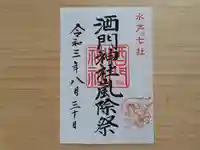 水戸七社
酒門神社風除祭
令和三年八月三十日